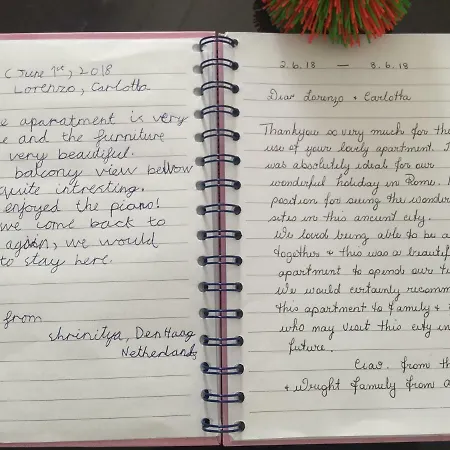 ( June 1st, 2018
Lorenzo, Carlotta
e aparatment is very
e and the furniture
very beautiful.
balcony view bellow
quite interesting.
enjoyed the piano!
we come back to
again, we would
to stay here.
from
Shrinitya, Den Haag
Netherlands
2.6.18 — 8.6.18
Dear Lorenzo + Carlotta
Thankyou so very much for the
use of your lovely apartment. I
was absolutely ideal for our
wonderful holiday in Rome.
position for seeing the wonder
sites in this ancient city.
We loved being able to be a
together + this was a beautif
apartment to spend our t
We would certainly recomm
this apartment to family +
who may visit this city in
future.
Ciao. from th
+ Wright family from